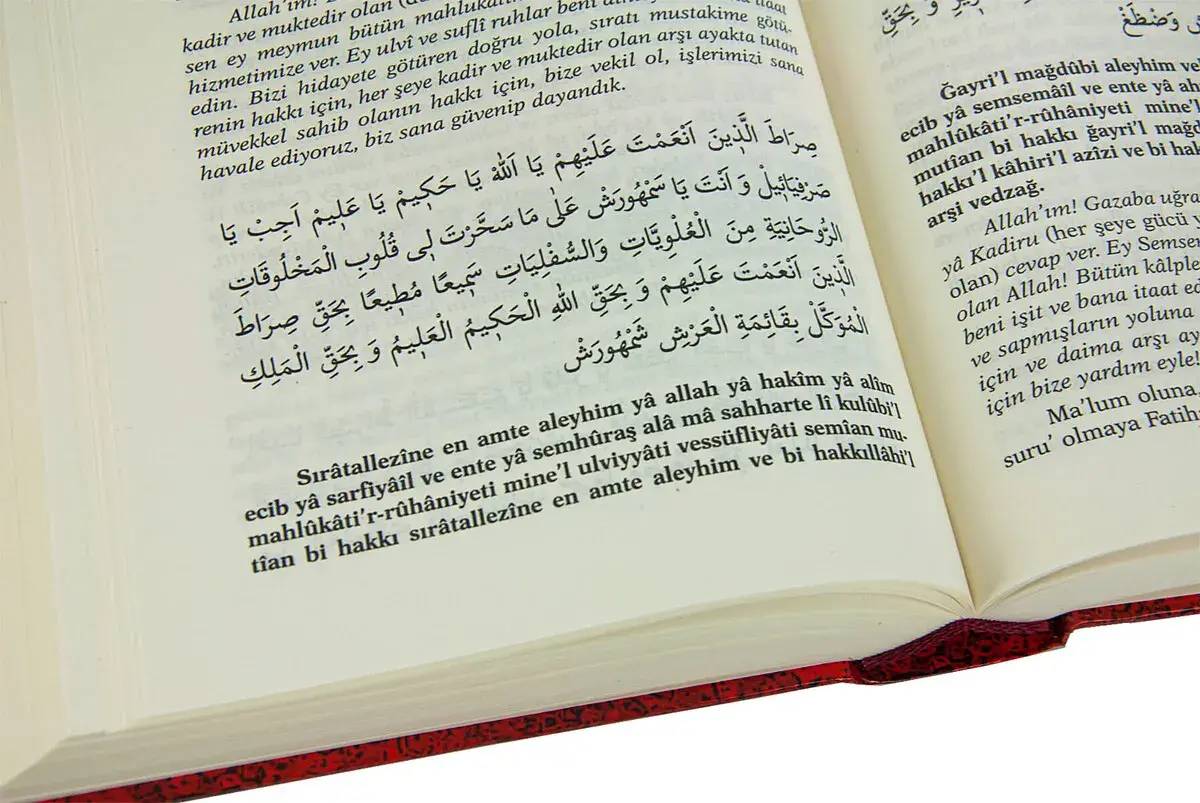 Allah'ım!
kadir ve muktedir olan
sen ey meymun bütün mahlukatın
hizmetimize ver. Ey ulvî ve suflî ruhlar beni
edin. Bizi hidayete götüren doğru yola, sıratı mustakime götü-
renin hakkı için, her şeye kadir ve muktedir olan arşı ayakta tutan
müvekkel sahib olanın hakkı için, bize vekil ol, işlerimizi sana
havale ediyoruz, biz sana güvenip dayandık.
صِرَاطَ الَّذِينَ اَنْعَمْتَ عَلَيْهِمْ يَا اَللّٰهُ يَا حَكِيمْ يَا عَلِيمْ اَجِبْ يَا
صَرْفِيَائِيلْ وَ اَنْتَ يَا سَمْهُورَشْ عَلٰى مَا سَخَّرْتَ لِى قُلُوبِ الْمَخْلُوقَاتِ
الرُّوحَانِيَةِ مِنَ الْعُلْوِيَّاتِ وَالسُّفْلِيَاتِ سَمِيعًا مُطِيعًا بِحَقِّ صِرَاطَ
الَّذِينَ اَنْعَمْتَ عَلَيْهِمْ وَ بِحَقِّ اللّٰهِ الْحَكِيمُ الْعَلِيمُ وَ بِحَقِّ الْمَلِكِ
الْمُوَكَّلِ بِقَائِمَةِ الْعَرْشِ شَمْهُورَشْ
Sırâtallezîne en amte aleyhim yâ allah yâ hakîm yâ alîm
ecib yâ sarfiyâîl ve ente yâ semhûraş alâ mâ sahharte lî kulûbi'l
mahlûkâti'r-rûhâniyeti mine'l ulviyyâti vessüfliyâti semîan mu-
tîan bi hakkı sırâtallezîne en amte aleyhim ve bi hakkıllâhi'l
وَ بِحَقِّ
وَضْطَغْ
Ğayri'l mağdûbi aleyhim
ecib yâ semsemâîl ve ente yâ
mahlûkâti'r-rûhâniyeti mine'l
mutîan bi hakkı ğayri'l
hakkı'l kâhiri'l azîzi ve bi
arşi vedzağ.
Allah'ım! Gazaba
yâ Kadiru (her şeye gücü
olan) cevap ver. Ey
olan Allah! Bütün
beni işit ve bana itaat
ve sapmışların yoluna
için ve daima arşı
için bize yardım eyle!
Ma'lum oluna
suru' olmaya